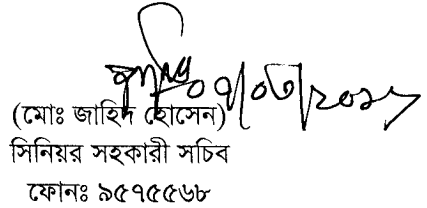 ০৭/০৩/২০১৭
(মোঃ জাহিদ হোসেন)
সিনিয়র সহকারী সচিব
ফোনঃ ৯৫৭৫৫৬৮